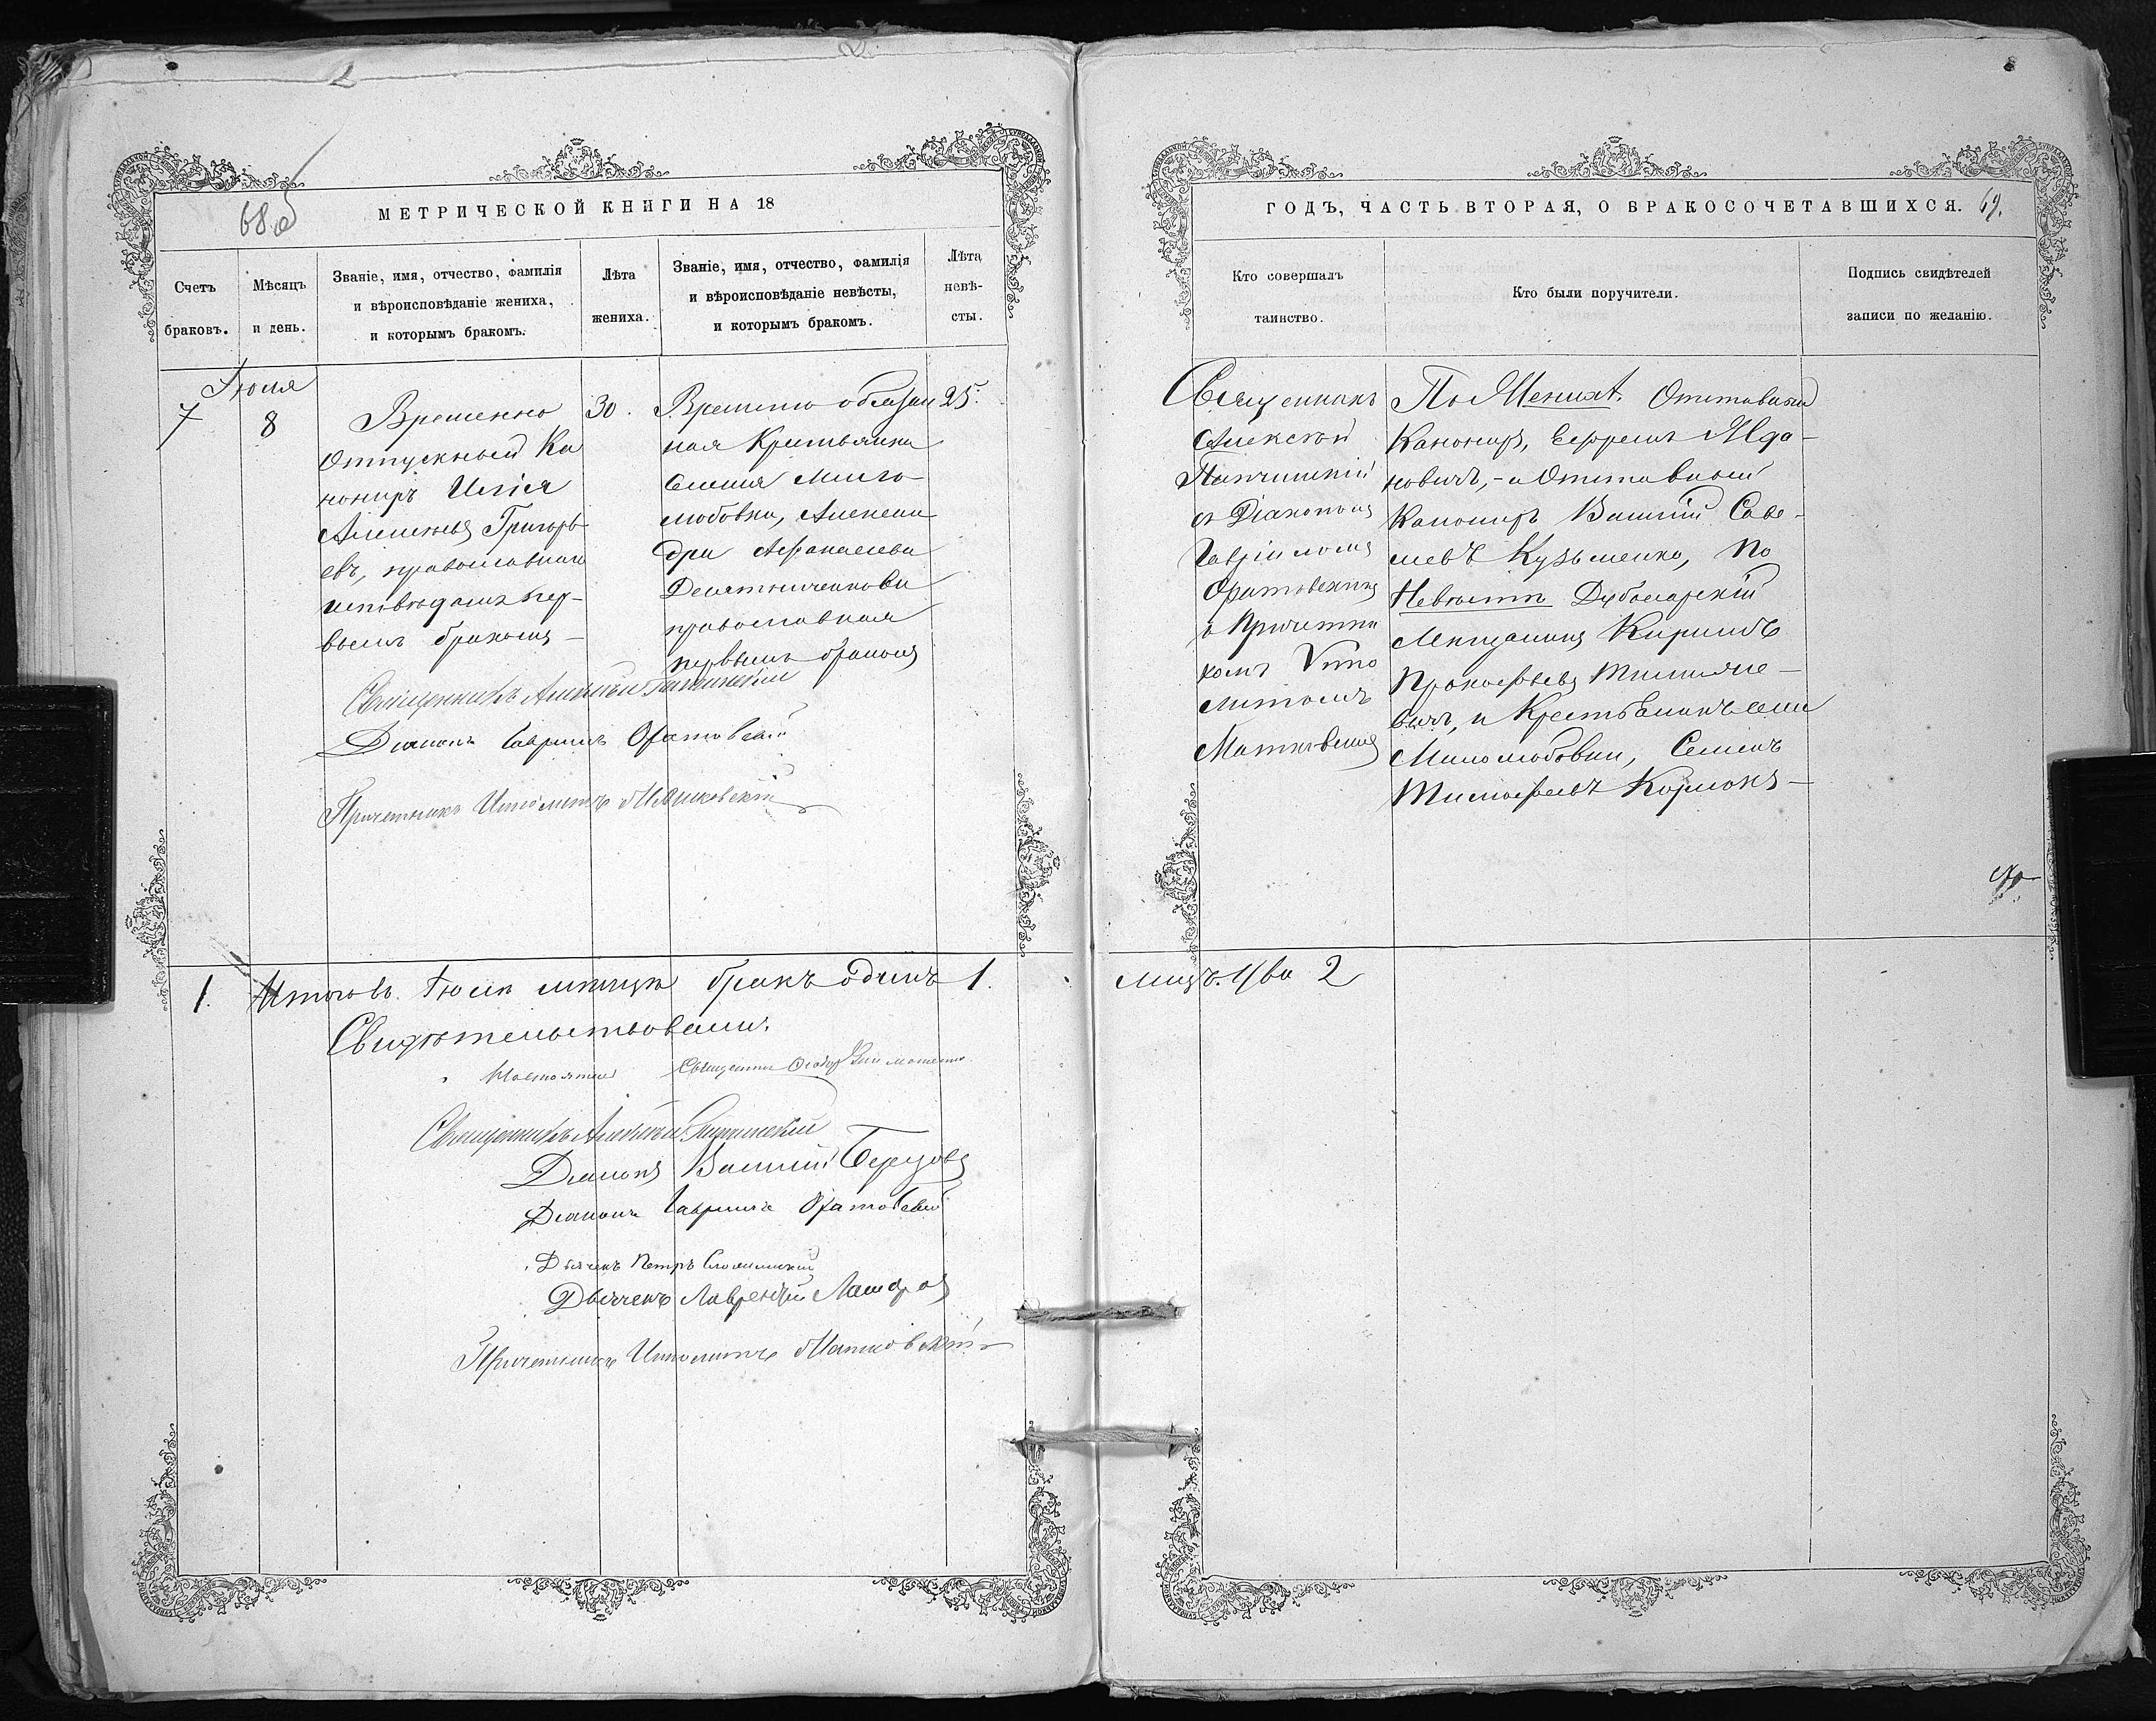 68 об
МЕТРИЧЕСКОЙ КНИГИ НА 18
Счетъ
браковъ.
Мѣсяцъ
и день.
Званіе, имя, отчество, фамилія
и вѣроисповѣданіе жениха,
и которымъ бракомъ.
Лѣта
жениха.
Званіе, имя, отчество, фамилія
и вѣроисповѣданіе невѣсты,
и которымъ бракомъ.
Лѣта
невѣ-
сты.
Іюля
7
8
Временно
отпускной Ка
нониръ Илія
Алексѣевъ Григорь
евъ, православнаго
первымъ бракомъ
30.
Временно обязан
ная Крестьянка
селенія Мило-
любовки, Александра
Афанасіева
Десятниченкова
православная
первымъ бракомъ
25.
Священникъ Алексѣй
Діаконъ Гавріилъ Оратовскій
Причетникъ Ипполитъ Матковскій
1. Итого въ Іюлѣ мѣсяцѣ бракъ одинъ 1.
Свидѣтельствовали:
Настоятель Священникъ
Священникъ Алексѣй
Діаконъ Василій Березовъ
Діаконъ Гавріилъ Оратовскій
Дьячекъ Петръ
Дьячекъ Лаврентій
Причетникъ Ипполитъ Матковскій
ГОДЪ, ЧАСТЬ ВТОРАЯ, О БРАКОСОЧЕТАВШИХСЯ. 69.
Кто совершалъ
таинство.
Кто были поручители.
Подпись свидѣтелей
записи по желанію.
Священникъ
Алексѣй
съ Діакономъ
Гавріиломъ
Оратовскимъ
и Причетни
комъ Ипо
литомъ
По Женихѣ. Отставной
Канониръ, Ефремъ Жда-
новичъ,- и Отставной
Канониръ Василій Саве-
льевъ Кузьменко, По
Невѣстѣ Дубосарскій
Мещанинъ Кирилъ
Прокофьевъ Тимоше-
вичъ, и Крестьянинъ села
Милолюбовки, Семенъ
Тимофеевъ
лицъ. два 2